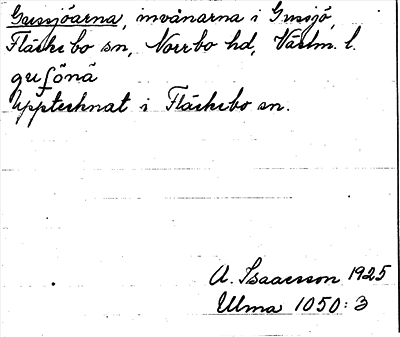 Gussjöarna, invånarna i Gussjö,
Fläckebo sn, Norrbo hd, Västm. l.
guʃönä
Upptecknat i Fläckebo sn.
A. Isaacsson 1925
Ulma 1050:3